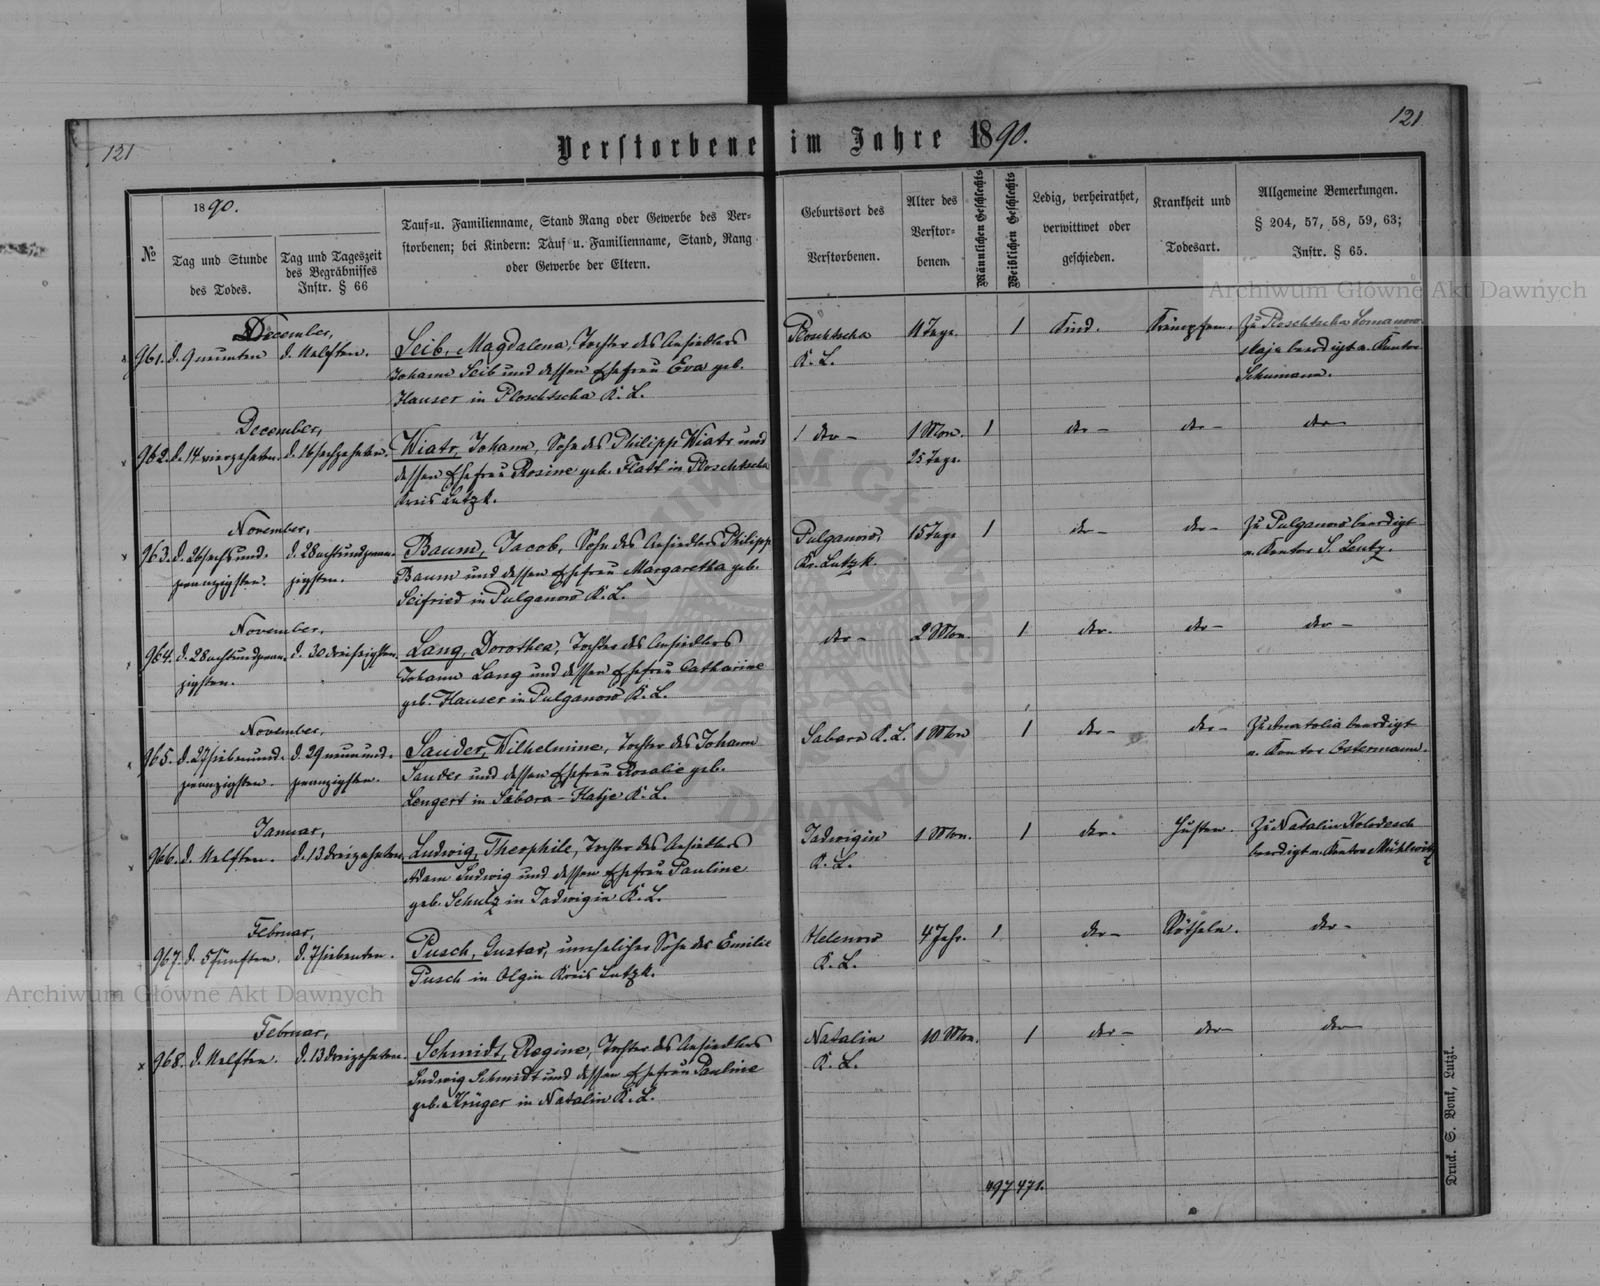 121
121
Verstorbene im Jahre 1890.
1890.
№
Tag und Stunde
des Todes.
Tag und Tageszeit
des Begräbnisses
Instr. § 66
Tauf-u. Familienname, Stand Rang oder Gewerbe des Ver-
storbenen; bei Kindern: Tauf u. Familienname, Stand, Rang
oder Gewerbe der Eltern.
Geburtsort des
Verstorbenen.
Alter des
Verstor-
benen.
Männlichen Geschlechts
Weiblichen Geschlechts
Ledig, verheirathet,
verwittwet oder
geschieden.
Krankheit und
Todesart.
Allgemeine Bemerkungen.
§ 204, 57, 58, 59, 63;
Instr. § 65.
Archiwum Główne Akt Dawnych
December,
961. d. 9 neunten d. 11 elften.
Seib, Magdalena, Tochter des Ansiedlers
Johann Seib und dessen Ehefrau Eva geb.
Hauser in Ploschtscha K. L.
Ploschtscha
K. L.
11 Tage. 1 Kind. Krämpfen.
Zu Ploschtscha
beerdigt v. Kantor
Schumann.
December,
962. d. 14 vierzehnten. d. 16 sechzehnten.
Wiatr, Johann, Sohn des Philipp Wiatr und
dessen Ehefrau Rosine geb. Flatt in Ploschtscha
Kreis Lutzk.
dto - 1 Mon. 1 dto - dto - dto -
25 Tage.
November,
963. d. 26 sechsund- d. 28 achtundzwan-
zwanzigsten. zigsten.
Baum, Jacob, Sohn des Ansiedlers Philipp
Baum und dessen Ehefrau Margaretha geb.
Seifried in Pulganow K. L.
Pulganow,
Kr. Lutzk.
15 Tage 1 dto - dto -
Zu Pulganow beerdigt
v. Kantor S. Lentz.
November,
964. d. 28 achtundzwan- d. 30 dreißigsten.
zigsten.
Lang, Dorothea, Tochter des Ansiedlers
Johann Lang und dessen Ehefrau Catharine
geb. Hauser in Pulganow K. L.
dto - 2 Mon. 1 dto. dto - dto -
November,
965. d. 27 siebenund- d. 29 neunund-
zwanzigsten. zwanzigsten.
Sauder, Wilhelmine, Tochter des Johann
Sauder und dessen Ehefrau Rosalie geb.
Lengert in Sabara - Hatje K. L.
Sabara K. L. 1 Mon 1 dto - dto -
Zu Anatolia beerdigt
v. Kantor Ostermann.
Januar,
966. d. 11 elften. d. 13 dreizehnten.
Ludwig, Theophile, Tochter des Ansiedlers
Adam Ludwig und dessen Ehefrau Pauline
geb. Schulz in Jadwigin K. L.
Jadwigin
K. L.
1 Mon. 1 dto. Husten.
Zu Natalin Kolodesch
beerdigt v. Kantor
Februar,
967. d. 5 fünften. d. 7 siebenten.
Pusch, Gustav, unehelicher Sohn der Emilie
Pusch in Olgin Kreis Lutzk.
Helenow
K. L.
4 Jahr. 1 dto - Rötheln. dto -
Archiwum Główne Akt Dawnych
Februar,
968. d. 11 elften. d. 13 dreizehnten.
Schmidt, Regine, Tochter des Ansiedlers
Ludwig Schmidt und dessen Ehefrau Pauline
geb. Krüger in Natalin K. L.
Natalin
K. L.
10 Mon. 1 dto - dto - dto -
497 471.
Druck. S. Bonk, Lutzk.